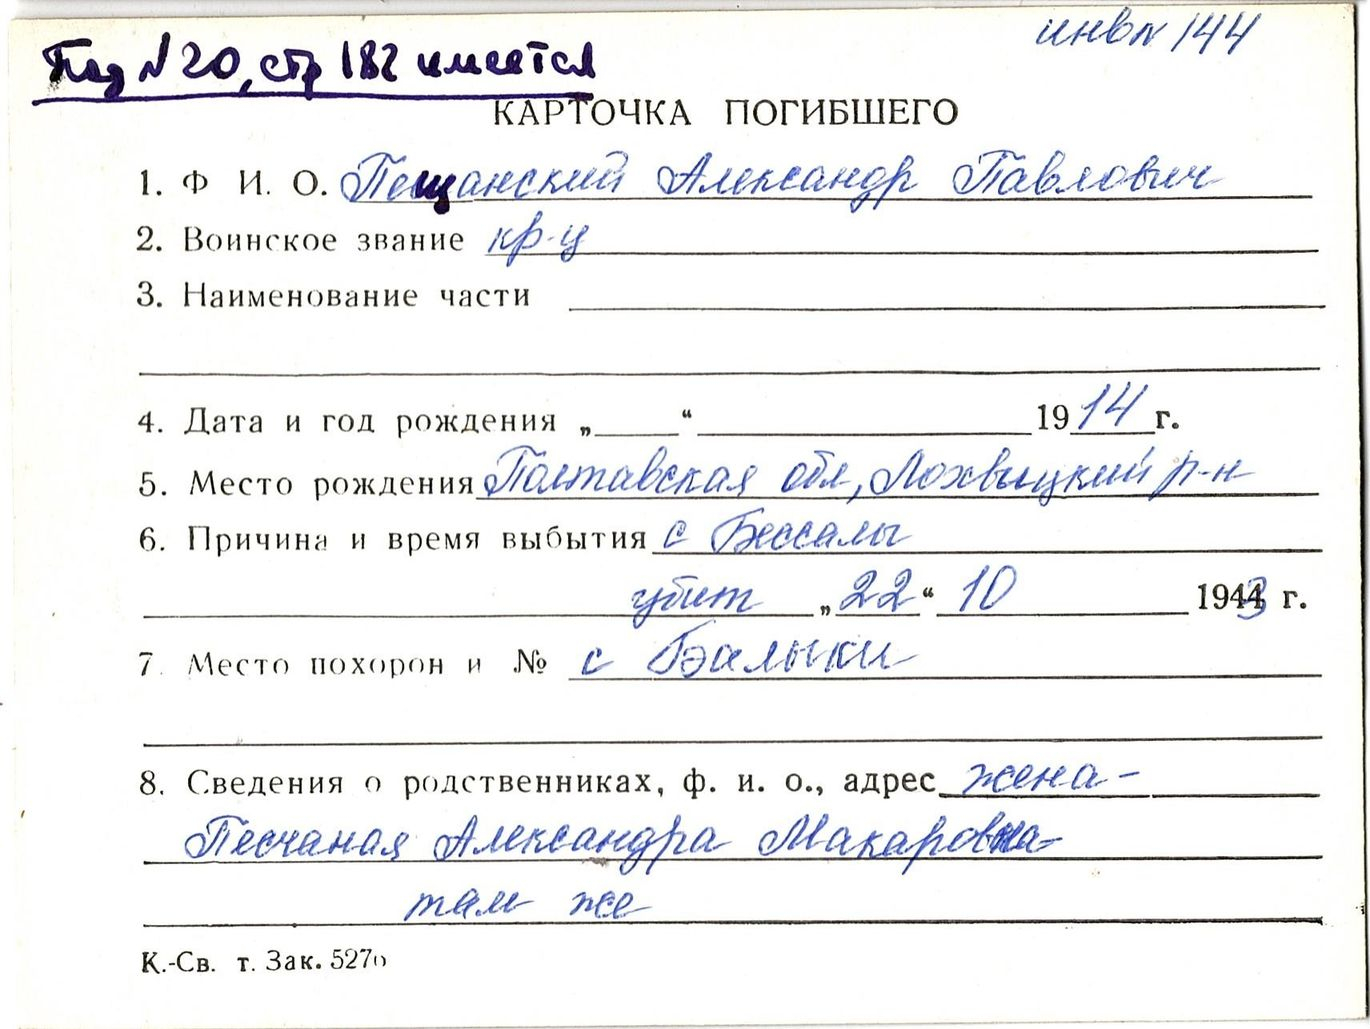 инв № 144
Под №20, стр 182 имеется
КАРТОЧКА ПОГИБШЕГО
1. Ф И. О. Пещанский Александр Павлович
2. Воинское звание кр-ц
3. Наименование части
4. Дата и год рождения „ “ 1914 г.
5. Место рождения Полтавская обл, Лохвыцкий р-н
6. Причина и время выбытия с Бессалы
убит „22“ 10 1943 г.
7. Место похорон и № с Балыки
8. Сведения о родственниках, ф. и. о., адрес жена-
Песчаная Александра Макаровна-
там же
К.-Св. т. Зак. 5270